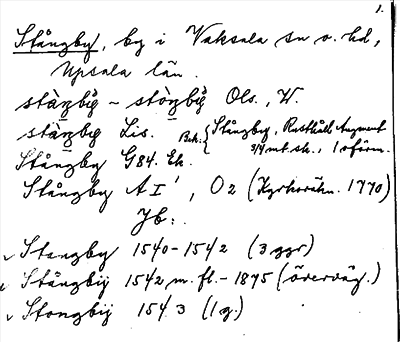 1.
Stångby, by i Vaksala sn o. hd,
Upsala län.
stàŋby̆ ~ stòŋby̆ Ols., W.
stàŋby Lis. Bek: { Stångby, Rusthåll Augment
3/4 mt sk., 1 oförm.
Stångby G84. Ek.
Stångby A I¹, O2 (Kyrkoräkn. 1770)
Jb:
v Stangby 1540-1542 (3 ggr)
v Stångbij 1542 m. fl. - 1875 (överväg.)
v Stongbij 1543 (1 g.)